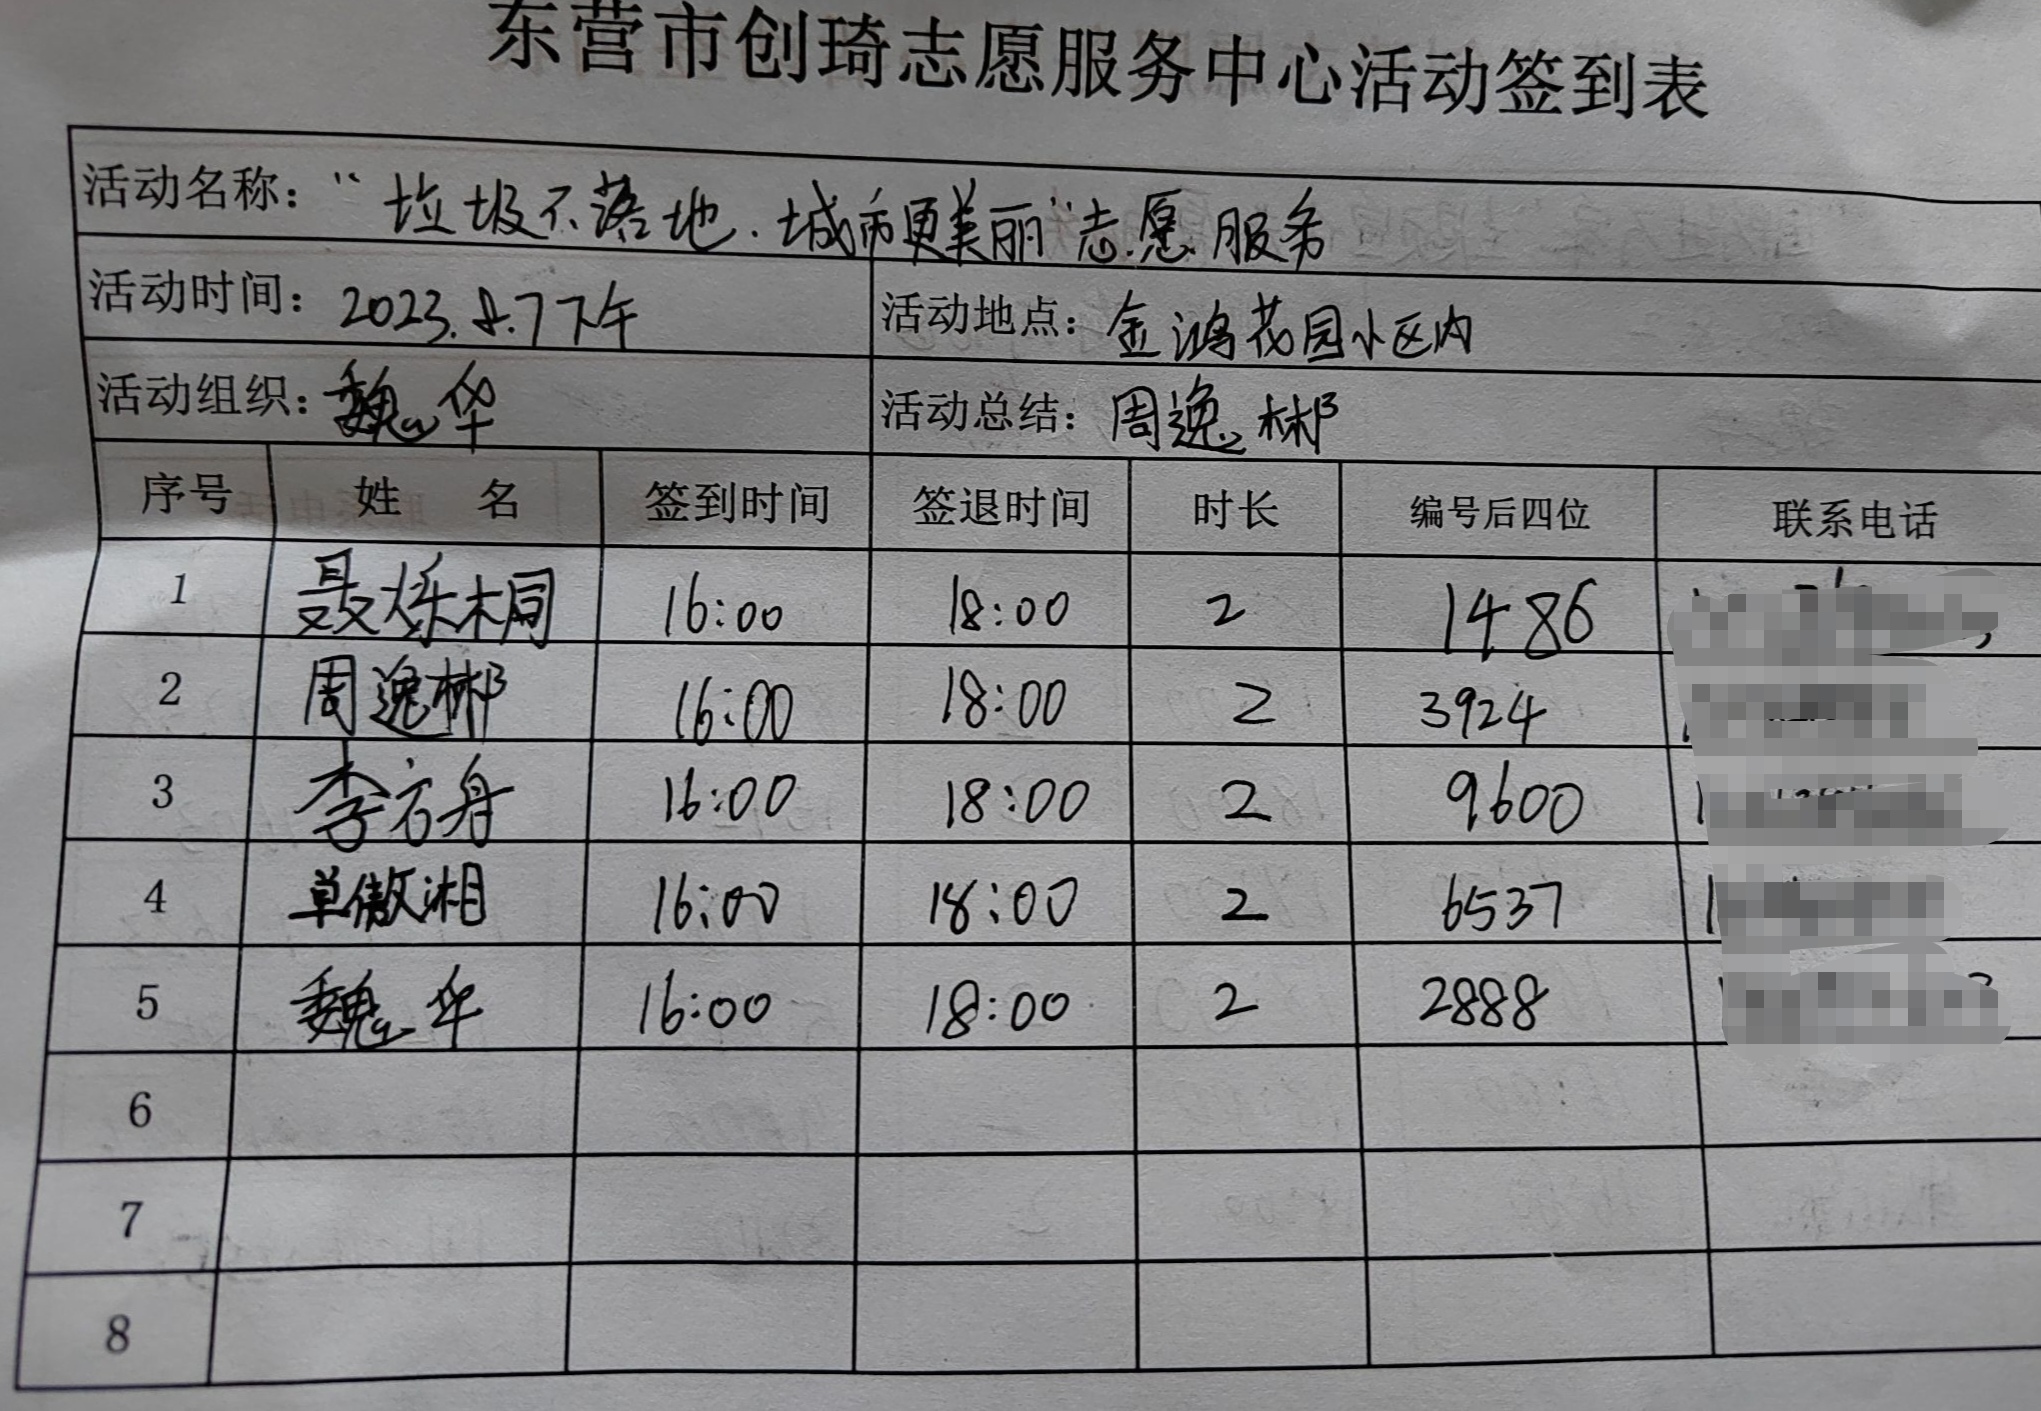 东营市创琦志愿服务中心活动签到表
活动名称：“垃圾不落地.城市更美丽”志愿服务
活动时间：2023.8.7下午 活动地点：金鸿花园小区内
活动组织：魏华 活动总结：周逸彬
序号 姓 名 签到时间 签退时间 时长 编号后四位 联系电话
1 聂烁桐 16:00 18:00 2 1486
2 周逸彬 16:00 18:00 2 3924
3 李方舟 16:00 18:00 2 9600
4 单傲湘 16:00 18:00 2 6537
5 魏华 16:00 18:00 2 2888
6
7
8